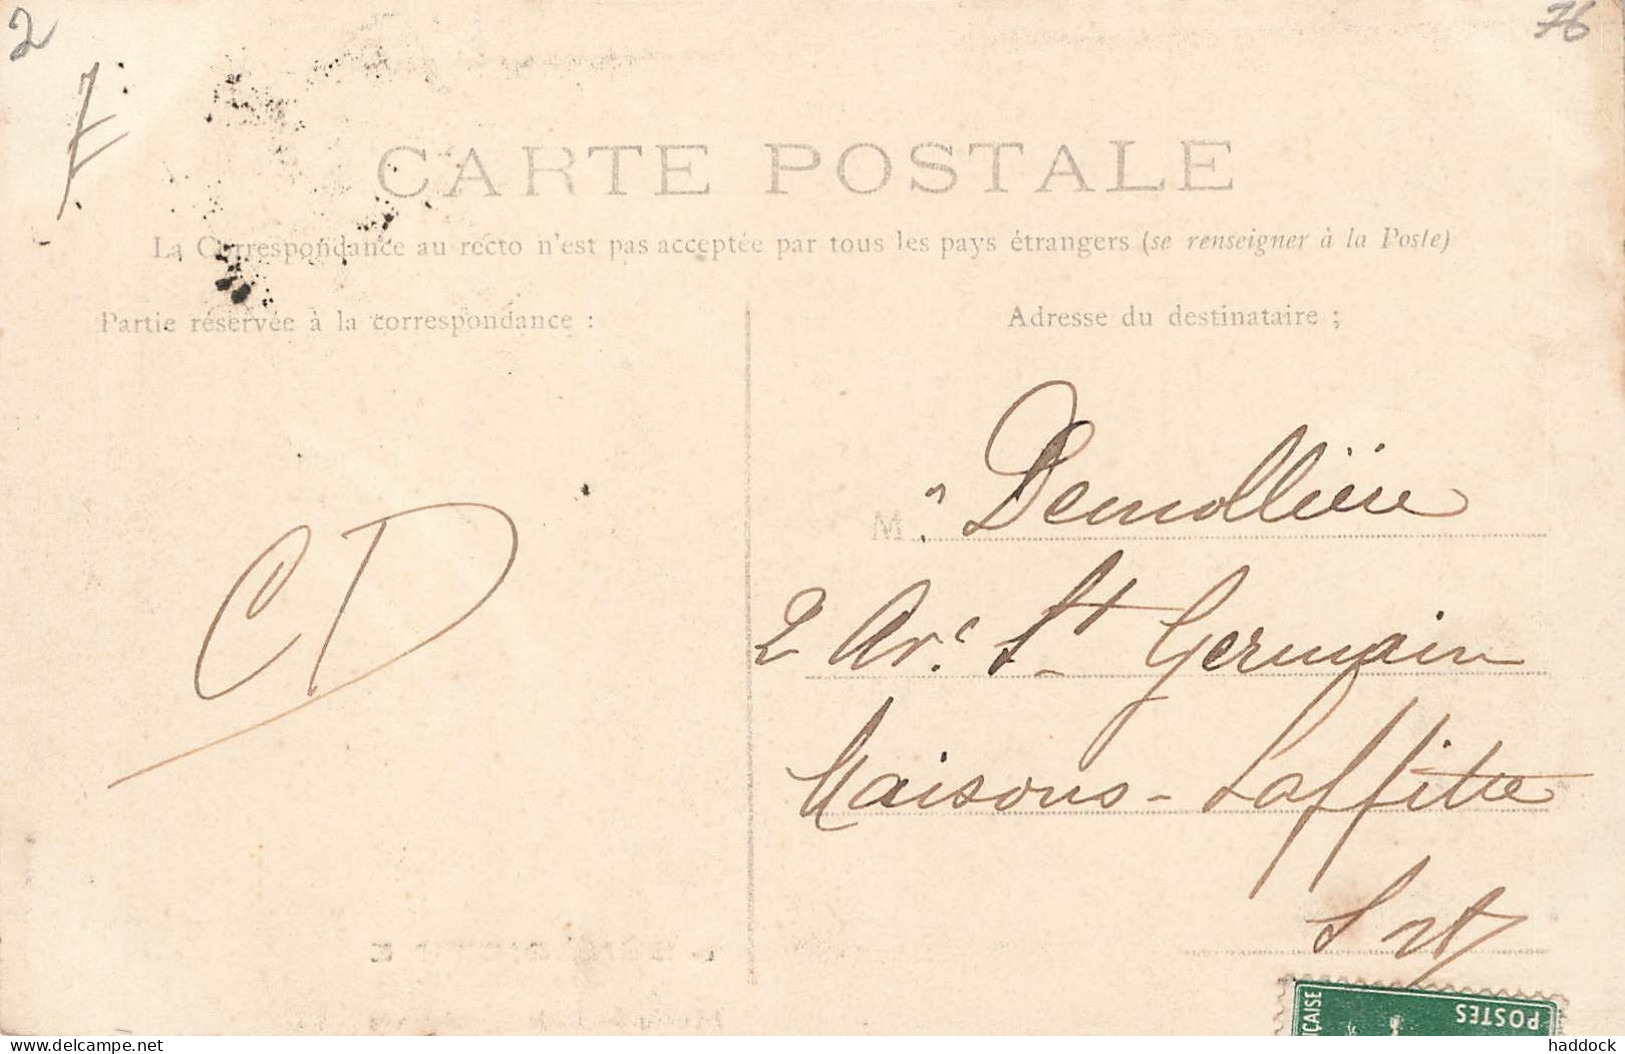 2
76
CARTE POSTALE
La Correspondance au recto n'est pas acceptée par tous les pays étrangers (se renseigner à la Poste)
Partie réservée à la correspondance :
Adresse du destinataire ;
M. Demollière
2 Av. St Germain
Maisons-Laffitte
CD
POSTES
delcampe.net
haddock